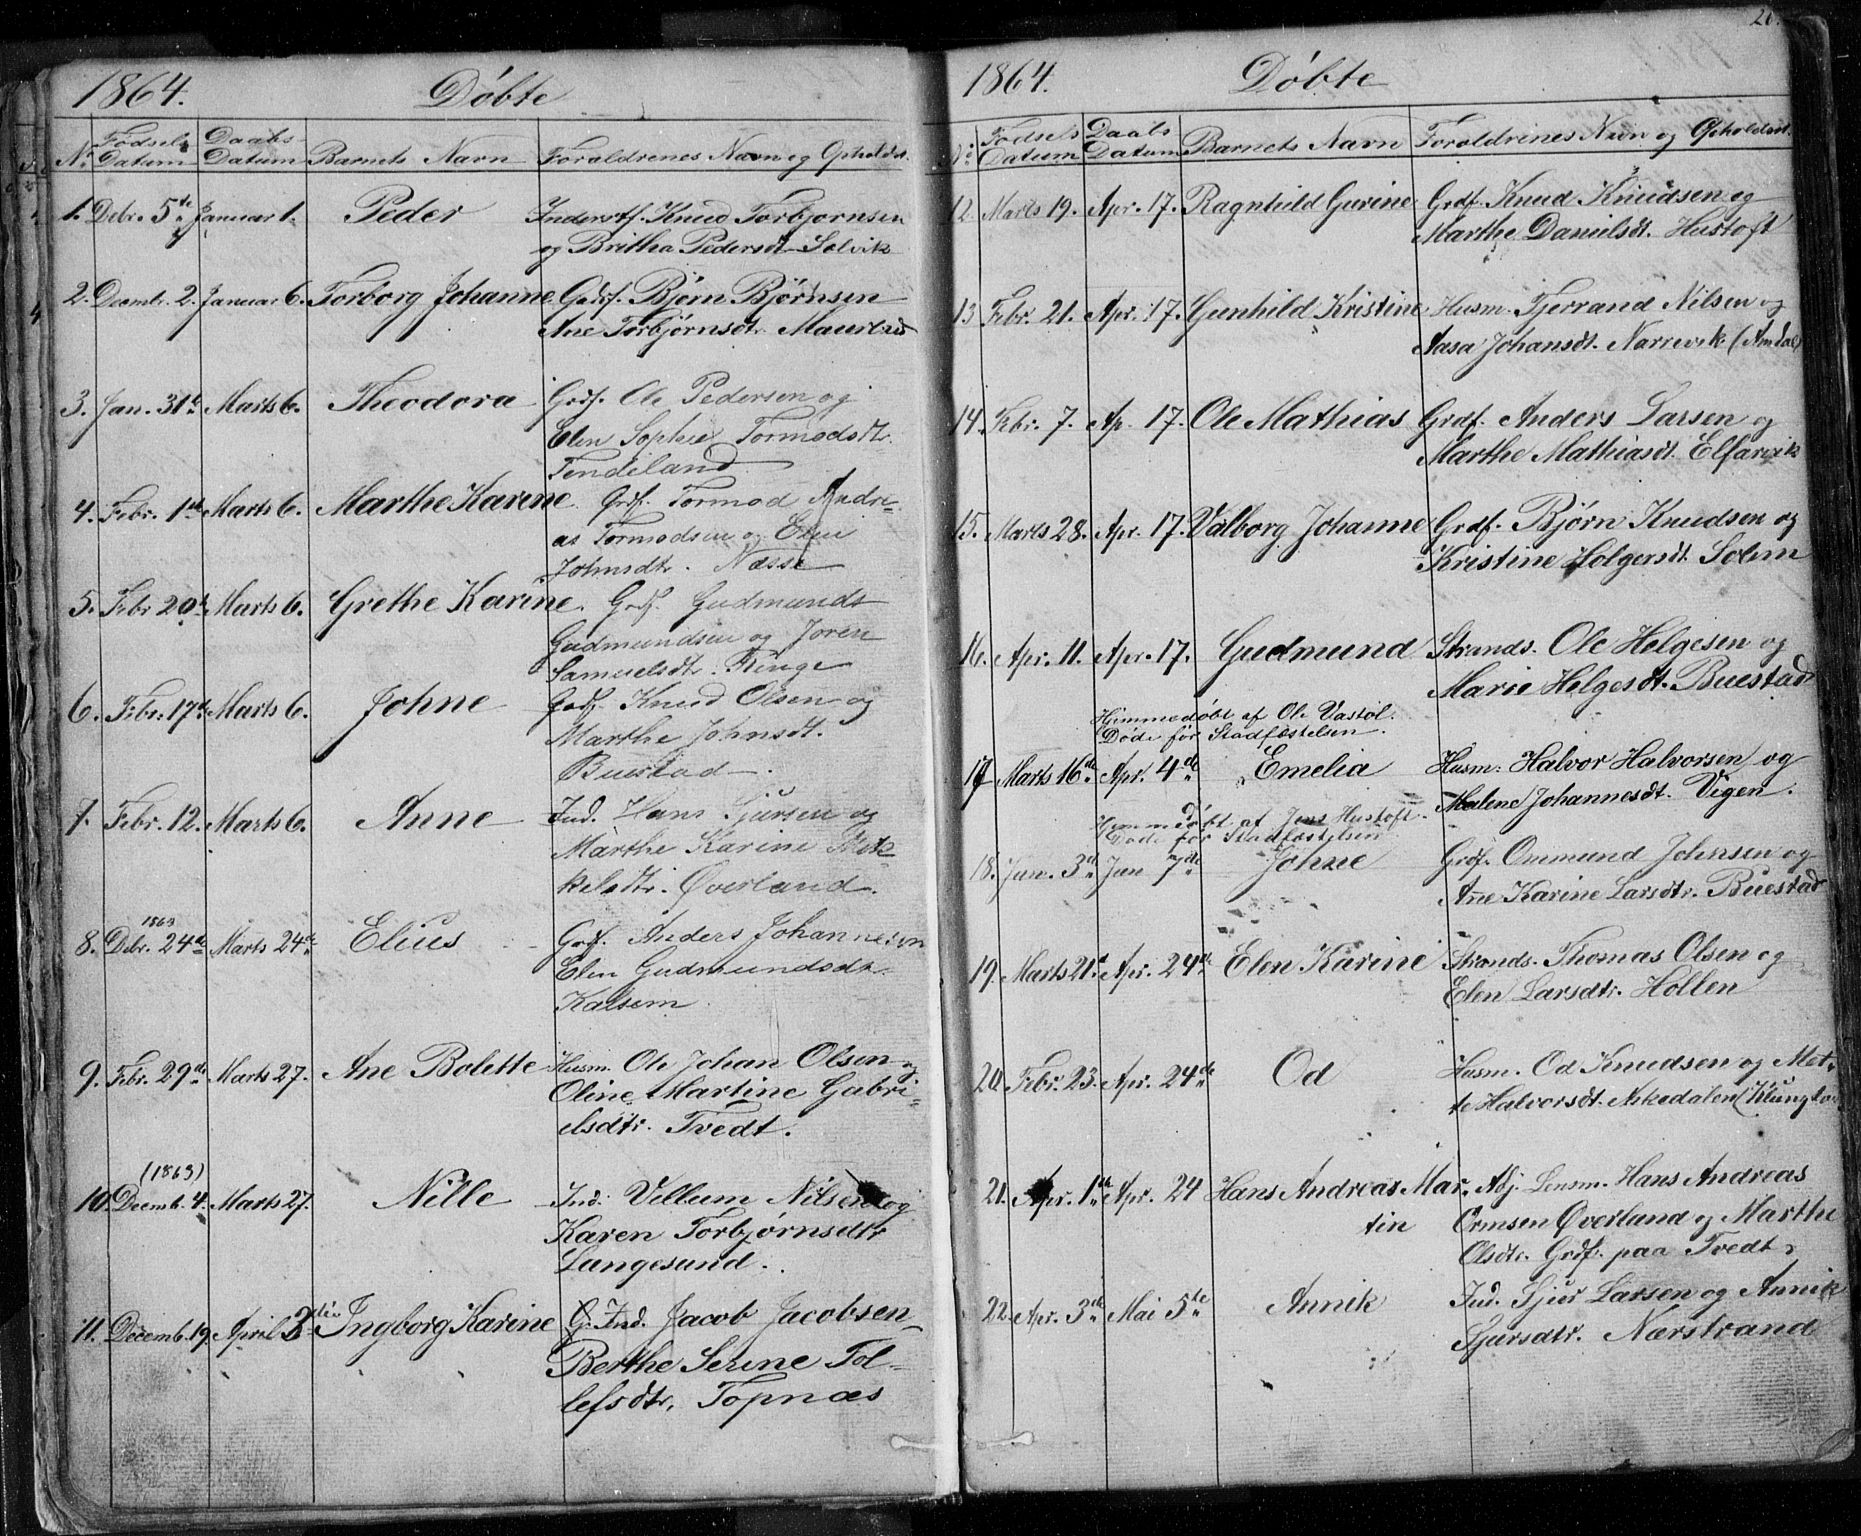 1864. Døbte
No Fødsels Datum Daabs Datum Barnets Navn Forældrenes Navn og Opholdst.
1. Debr. 5te Januar 1. Peder Inderstf. Knud Torbjørnsen
og Britha Pedersdt. Solvik
2. Decmbr. 2. Januar 6. Torborg Johanne Grdf. Bjørn Bjørnsen
Ane Torbjørnsdt.
3. Jan. 31te Marts 6. Theodora Grdf. Ole Pedersen og
Elen Sophie Tormodsdtr.
Tendeland
4. Febr. 1ste Marts 6. Marthe Karine Grdf. Tormod Andre-
as Tormodsen og Elen
Johnsdtr. Næsse
5. Febr 20de Marts 6. Grethe Karine. Grdf. Gudmunds
Gudmundsen og Joren
Samuelsdtr. Ringe
6. Febr. 17de Marts 6. Johne Grdf. Knud Olsen og
Marthe Johnsdt.
Buestad
7. Febr. 12. Marts 6. Anne Ind. Hans Sjursen og
Marthe Karine Mik-
kelsdtr. Øverland.
8. 1863 Debr. 24de Marts 24de Elius Grdf. Anders Johannesen
Elen Gudmundsdt.
Kalsem
9. Febr. 29de Marts 27. Ane Bolette Husm. Ole Johan Olsen og
Oline Martine Gabri-
elsdtr. Tvedt.
(1863)
10. Decmb. 4. Marts 27. Nille Ind. Villum Nilsen og
Karen Torbjørnsdtr
Langesund.
11. Decemb. 19. April 3die Ingborg Karine G. Ind. Jacob Jacobsen
Berthe Serine Tol-
lefsdtr. Topnæs
1864. Døbte
No Fødsels Datum Daabs Datum Barnets Navn Forældrenes Navn og Opholdst.
12 Marts 19. Apr. 17. Ragnhild Gurine Grdf. Knud Knudsen og
Marthe Danielsdt. Hustoft
13 Febr. 21. Apr. 17. Gunhild Kristine Husm. Tjerrand Nilsen og
Aasa Johansdt. Narrevik (Amdal)
14. Febr. 7. Ap. 17. Ole Mathias Grdf. Anders Larsen og
Marthe Mathiasdt. Elfarvik
15. Marts 28. Apr. 17. Valborg Johanne Grdf. Bjørn Knudsen og
Kristine Holgersdt. Solem
16. Apr. 11. Apr. 17. Gudmund Strands. Ole Helgesen og
Marie Helgesdt. Buestad
Hjemmedøbt af Ole Vastøl.
Døde før Stadfæstelsen.
17 Marts 16de Apr. 4de Emelia Husm. Halvor Halvorsen og
Malene Johannesdt. Vigen.
Hjemmedøbt af Jens Hustoft.
Døde før Stadfæstelsen
18. Jan. 3de Jan 7de Johne Grdf. Ommund Johnsen og
Ane Karine Larsdtr. Buestad
19. Marts 21st Apr. 24de Elen Karine Strands. Thomas Olsen og
Elen Larsdtr. Hollen
20. Febr. 23. Apr. 24de Od Husm. Od Knudsen og Met-
te Halvorsdt. Askedalen
21. Apr. 1ste Apr. 24 Hans Andreas Mar- Adj. Lensm. Hans Andreas
tin Ormsen Øverland og Marthe
Olsdtr. Grdf. paa Tvedt
22. Apr. 3de Mai 5te Annik Ind. Sjur Larsen og Annik
Sjursdtr. Nærstrand